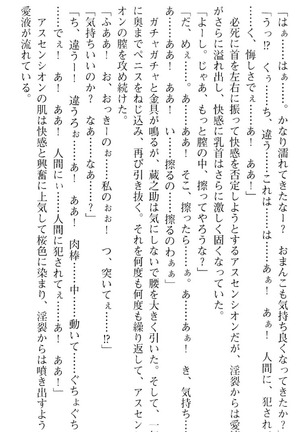 「はぁ……はぁ……。かなり濡れてきたなー？　おまんこも気持ち良くなってきたか？」
「うっ!?　くぅ……ち、違う……これは……は……あぁ！　あぁ！　人間に、犯され
……くぅ、悔しさでぇ……あ、ああ！」
　必死に首を左右に振って快感を否定しようとするアスセンシオンだが、淫裂からは愛
がさらに溢れ出し、快感に乳首はさらに激しく固くなっていた。
「よーし。じゃあ、もっと膣の中、擦ってやろうな？」
「だ、めぇ……。あぁ！　あぁ！　そこ、擦ったら……あ、あぁ！　あぁ！　き、気持
……い……あぁ！　あぁ！　あぁ！　……い、擦るの……擦るのわぁぁ」
　ガチャガチャと金具が鳴るが、蔵之助は気にしないで腰を大きく引いた。そして、一
に奥までペニスをねじ込み、再び引き抜く。それを何度も何度も繰り返して、アスセン
オンの膣を攻め続けた。
「ふああ！　お、おっきーのぉ……私のぉぉ！　つ、突いてぇ……!?」
「気持ちいいのか？　なぁ……なぁ……？」
「ち、違うー！　違うろぉ……あ、ああ！　肉棒……中……動いて……ぐちょぐちょ
……でぇ！　あ、ああ！　人間にぃ……人間に犯されてぇ……あ、ああ！」
　アスセンシオンの肌は快感と興奮に上気して桜色に染まり、淫裂からは噴き出すよう
愛液が流れている。